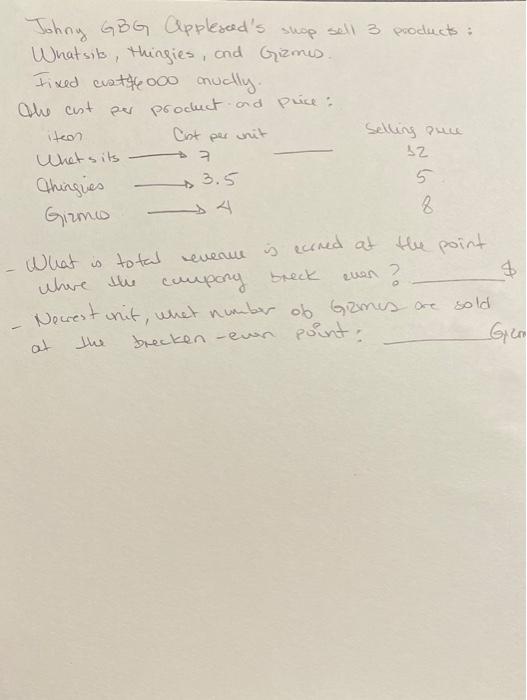 Johny GBG Appleseed's shop sell 3 products:
Whatsits, thingies, and Gizmos.
Fixed cost 000 anually.
The cost per product and price:
item Cost per unit Selling price
Whatsits → 7 —
Thingies → 3.5 5
Gizmo → 4 8
- What is total revenue is earned at the point
where the company break even? ______ $
- Nearest unit, what number of Gizmos are sold
at the breaken-even point: ______ Gizm